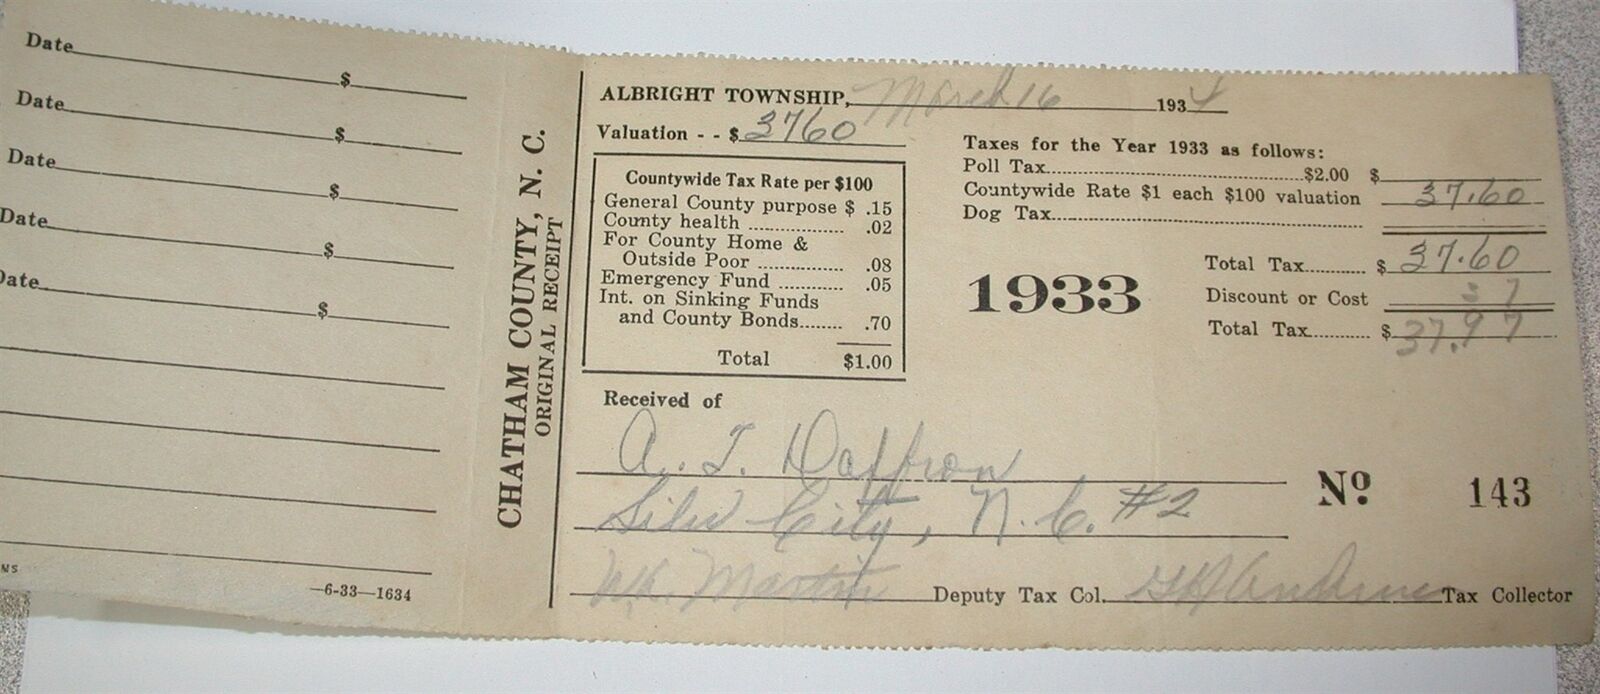 Date $
Date $
Date $
Date $
Date $
—6-33—1634
CHATHAM COUNTY, N. C.
ORIGINAL RECEIPT
ALBRIGHT TOWNSHIP, March 16 1934
Valuation - - $ 3760
Countywide Tax Rate per $100
General County purpose $ .15
County health .02
For County Home &
Outside Poor .08
Emergency Fund .05
Int. on Sinking Funds
and County Bonds .70
Total $1.00
Taxes for the Year 1933 as follows:
Poll Tax $2.00 $
Countywide Rate $1 each $100 valuation 37.60
Dog Tax
1933
Total Tax $ 37.60
Discount or Cost 37
Total Tax $ 37.97
Received of
A. T. Daffron
Siler City, N. C. #2
No. 143
W.K. Martin Deputy Tax Col. Tax Collector